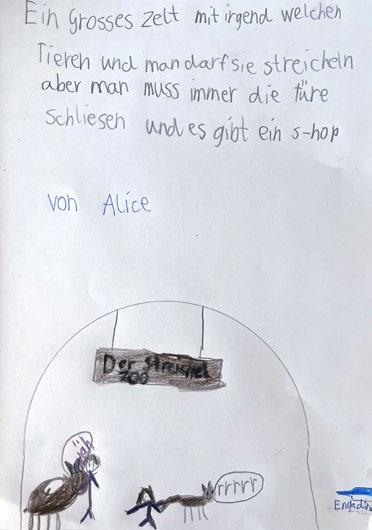 Ein Grosses Zelt mit irgend welchen
Tieren und man darf sie streicheln
aber man muss immer die türe
schliesen und es gibt ein s-hop
von Alice
Der Streichel
zoo
rrrrr